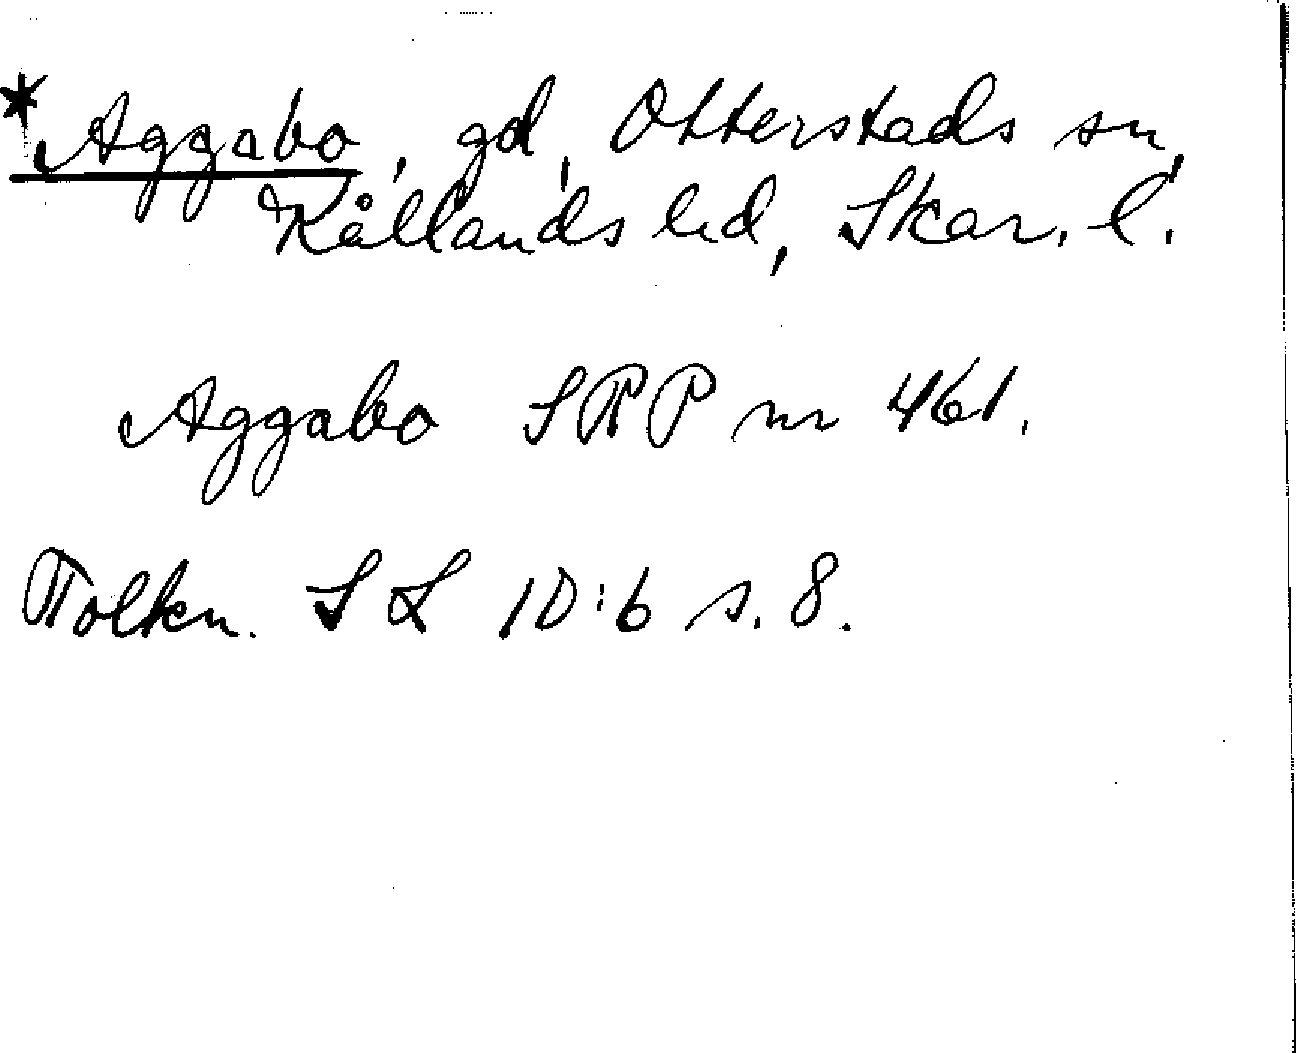 *Aggabo, gd, Otterstads sn,
Kållands hd, Skar. l.
Aggabo SRP nr 461.
Tolkn. SL 10:6 s. 8.